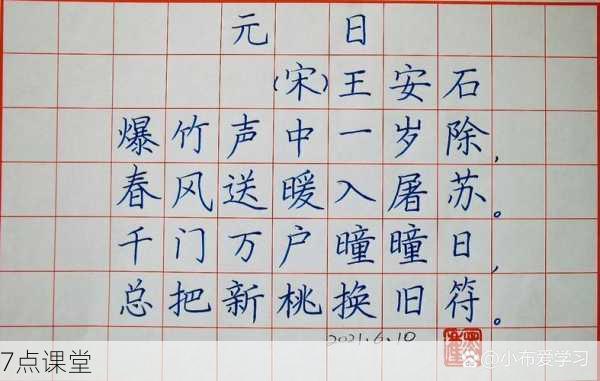 元日
(宋)王安石
爆竹声中一岁除,
春风送暖入屠苏。
千门万户曈曈日,
总把新桃换旧符。
2021.6.10
7点课堂
@小布爱学习